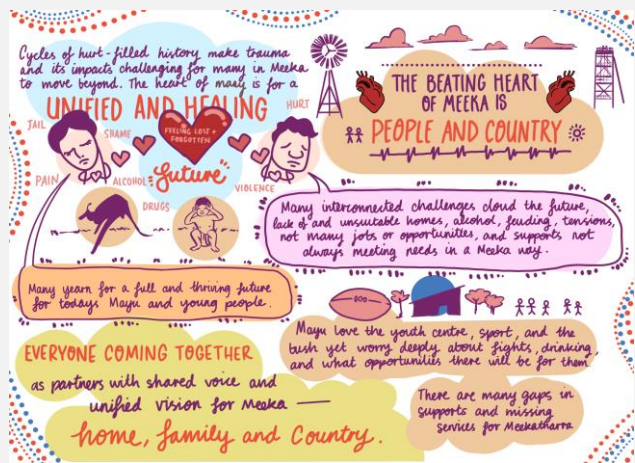 Cycles of hurt-filled history make trauma
and its impacts challenging for many in Meeka
to move beyond. The heart of many is for a
UNIFIED AND HEALING
future
JAIL
SHAME
PAIN
ALCOHOL
DRUGS
FEELING LOST +
FORGOTTEN
HURT
VIOLENCE
THE BEATING HEART
OF MEEKA IS
PEOPLE AND COUNTRY
Many interconnected challenges cloud the future,
lack of and unsuitable homes, alcohol, feuding, tensions,
not many jobs or opportunities, and supports not
always meeting needs in a Meeka way.
Many yearn for a full and thriving future
for todays Mayu and young people.
Mayu love the youth centre, sport, and the
bush yet worry deeply about fights, drinking,
and what opportunities there will be for them
EVERYONE COMING TOGETHER
as partners with shared voice and
unified vision for Meeka —
home, family and Country.
There are many gaps in
supports and missing
services for Meekatharra